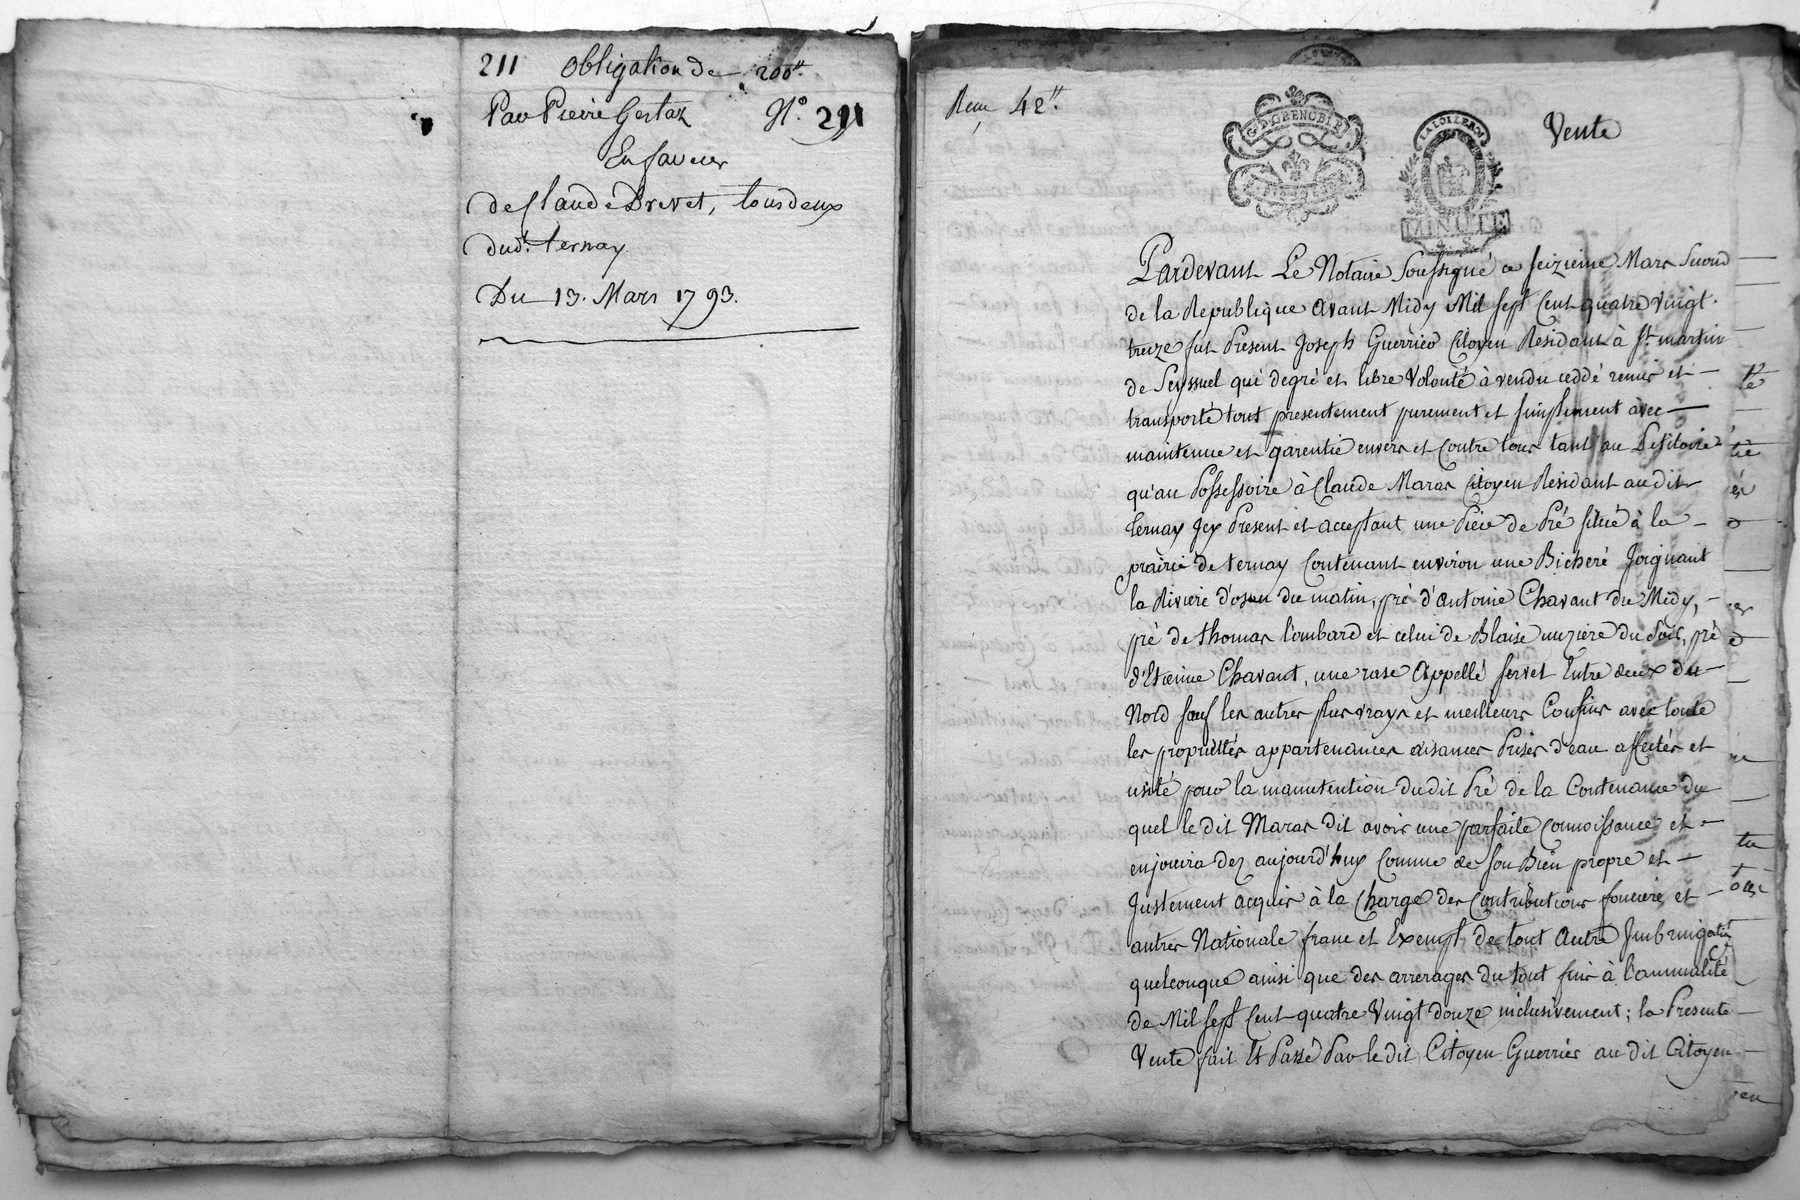 211 Obligation de 200ᵗᵗ
Par Pierre Gertaz N.º 211
En faveur
de Claude Brevet, tous deux
dud.t ternay
Du 13. Mars 1793.
42ᵗᵗ
G.D GRENOBLE
LA LOI LE ROI
MINUTE
4. S.
Vente
Pardevant Le Notaire Soussigné ce seizieme Mars Second
de la Republique avant Midy Mil sept Cent quatre vingt
treize fut Présent Joseph Guerrier Citoyen Residant à St. martin
de Seyssuel qui degré et libre Volonté à vendu ceddé remis et
transporté tout presentement purement et simplement avec
maintenue et garentie envers et Contre tous tant au Petitoire
qu'au Possessoire à Claude Maras Citoyen Residant audit
ternay Icy Présent et acceptant une Piece de Pré situé à la
prairie de ternay Contenant environ une Bicheré Joignant
la Riviere d'oson du matin, pré d'antoine Chavant du Midy,
pré de thomas lombard et celui de Blaise muziere du Soir, pré
d'Etienne Chavant, une rase Appellé servet Entre deux du
Nord sauf les autres plus vrays et meilleurs Confins avec toute
les propriettés appartenances aisances Prises d'eau affectés et
usité pour la manutention dudit Pré de la Contenance du
quel le dit Maras dit avoir une parfaite Connoissance et
enjouira dez aujourd'huy Comme de son Bien propre et
Justement acquis à la Charge des Contributions fonciere et
autres Nationale franc et Exempt de tout Autre Imbringation
quelconque ainsi que des arrerages du tout fins à l'annualité
de Mil sept Cent quatre Vingt douze inclusivement; la Presente
Vente fait Et Passé Par le dit Citoyen Guerrier au dit Citoyen